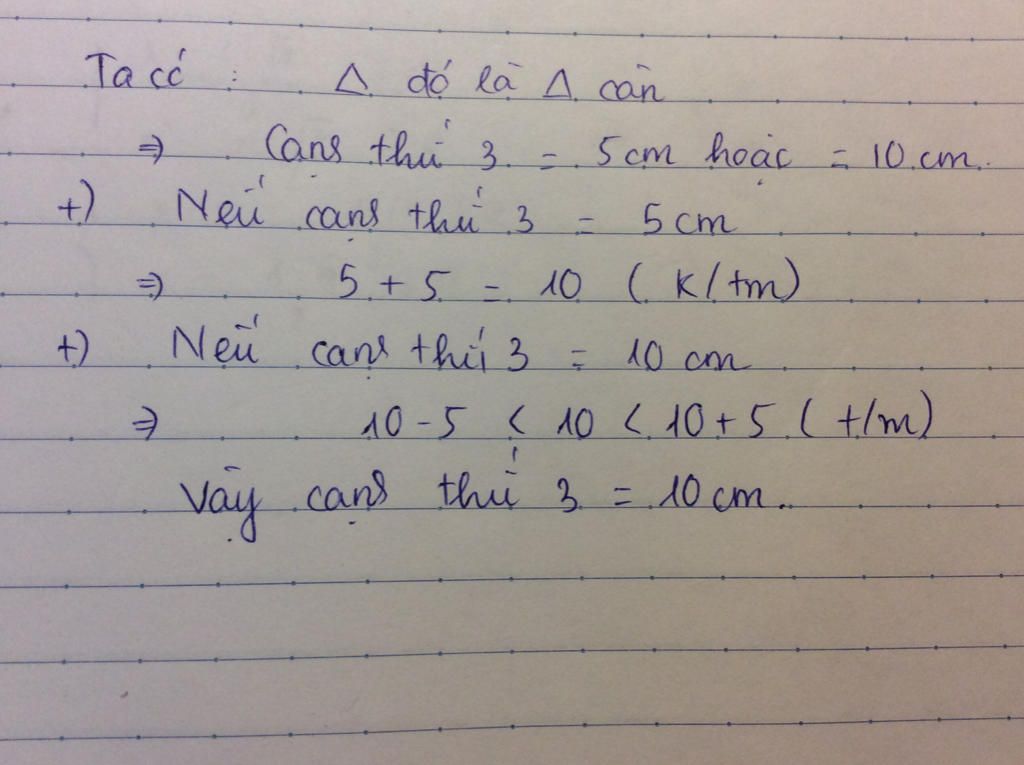 Ta có : Δ đó là Δ cân
⇒ Cạnh thứ 3 = 5cm hoặc = 10 cm.
+) Nếu cạnh thứ 3 = 5cm
⇒ 5 + 5 = 10 ( k/tm)
+) Nếu cạnh thứ 3 = 10 cm
⇒ 10 - 5 < 10 < 10 + 5 ( t/m)
Vậy cạnh thứ 3 = 10 cm.